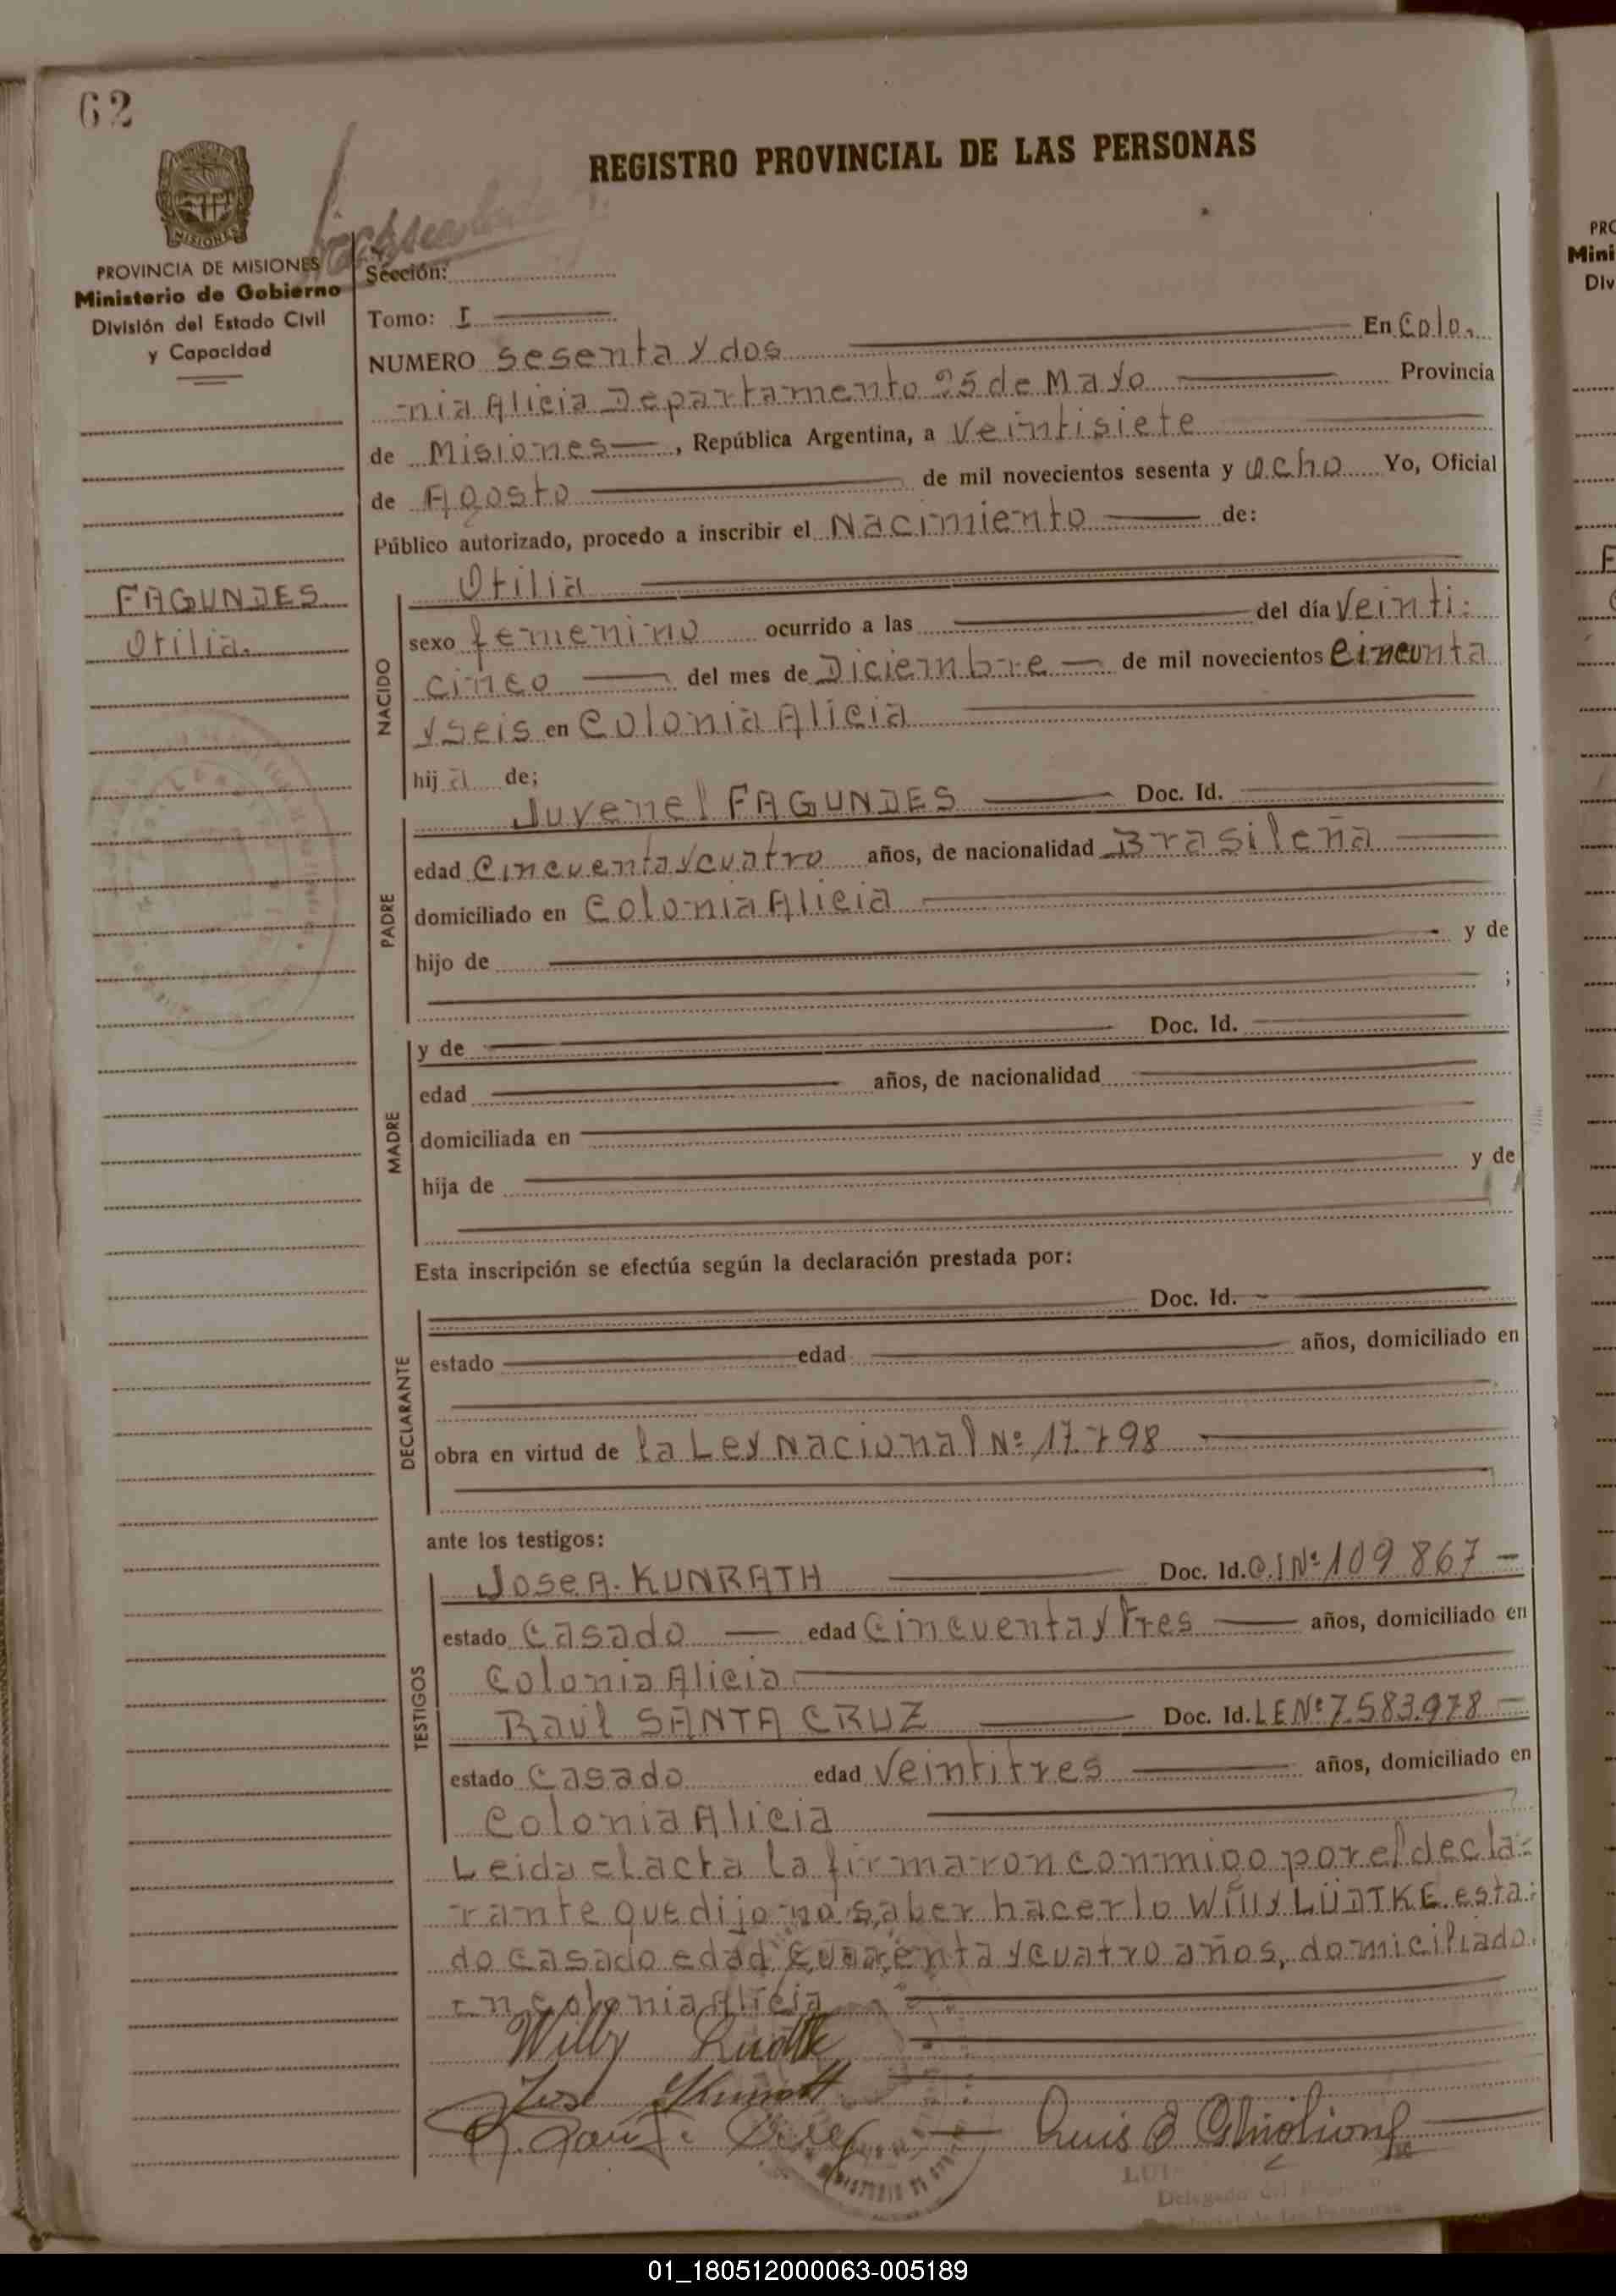 62
REGISTRO PROVINCIAL DE LAS PERSONAS
MISIONES
PROVINCIA DE MISIONES
Ministerio de Gobierno
División del Estado Civil
y Capacidad
Sección:
Tomo: I
NUMERO sesenta y dos En Colo.
nia Alicia Departamento 25 de Mayo Provincia
de Misiones, República Argentina, a Veintisiete
de Agosto de mil novecientos sesenta y ocho Yo, Oficial
Público autorizado, procedo a inscribir el Nacimiento de:
FAGUNDES
Otilia.
NACIDO
Otilia
sexo femenino ocurrido a las del día Veinti:
cinco del mes de Diciembre de mil novecientos cincunta
y seis en Colonia Alicia
hija de;
PADRE
Juvenel FAGUNDES Doc. Id.
edad Cincuenta y cuatro años, de nacionalidad Brasileña
domiciliado en Colonia Alicia
hijo de y de
;
MADRE
y de Doc. Id.
edad años, de nacionalidad
domiciliada en
hija de y de
Esta inscripción se efectúa según la declaración prestada por:
DECLARANTE
Doc. Id.
estado edad años, domiciliado en
obra en virtud de la Ley Nacional Nº 17.798
ante los testigos:
TESTIGOS
Jose A. KUNRATH Doc. Id. C.I Nº 109867 -
estado Casado edad Cincuenta y Tres años, domiciliado en
Colonia Alicia
Raúl SANTA CRUZ Doc. Id. L E Nº 7.583.978 -
estado Casado edad Veintitres años, domiciliado en
Colonia Alicia
Leida el acta la firmaron conmigo por el decla:
rante que dijo no saber hacerlo Willy LÜDTKE esta:
do casado edad cuarenta y cuatro años, domiciliado
en Colonia Alicia
Willy Ludtke
Jose
Luis
Delegado del
PRO
Mini
Div
F
01_180512000063-005189